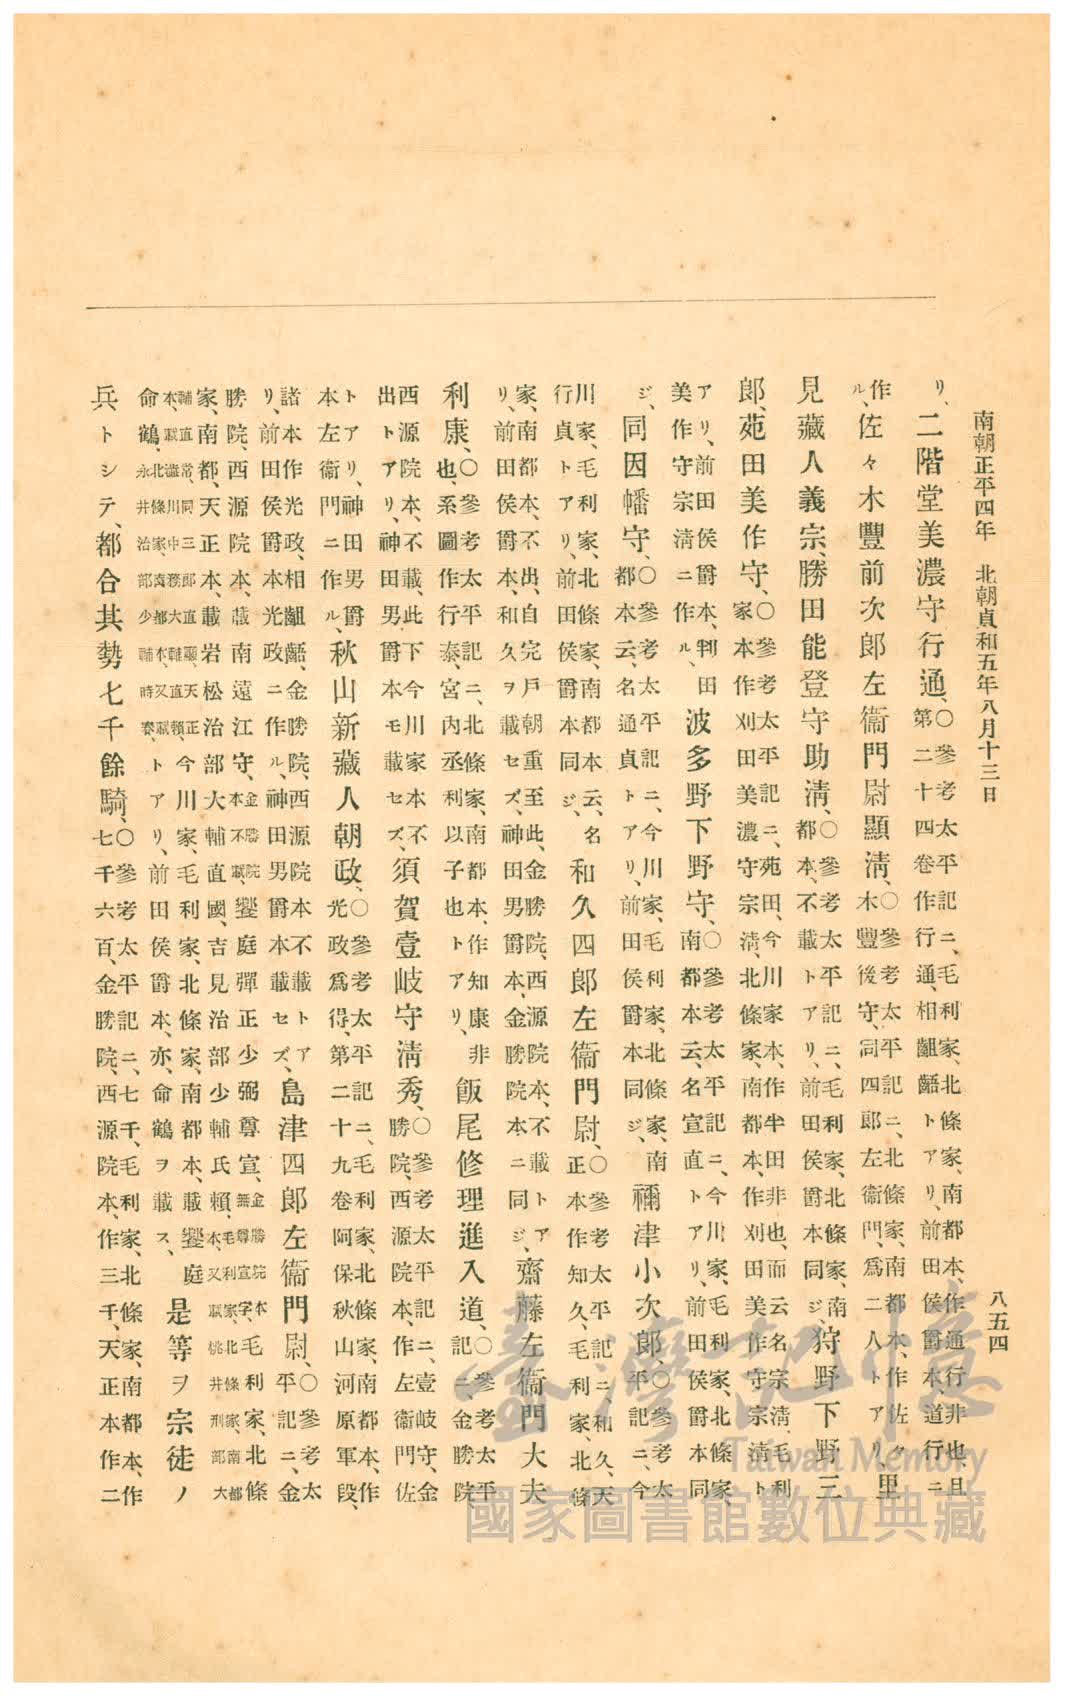 南朝正平四年　北朝貞和五年八月十三日
八五四
リ、二階堂美濃守行通、○參考太平記ニ、毛利家、北條家、南都本、作通行非也、且第二十四卷作行通、相齟齬トアリ、前田侯爵本、道行ニ
作ル、佐々木豐前次郎左衞門尉顯淸、○參考太平記ニ、北條家、南都本、作佐々木豐後守、同四郎左衞門、爲二人トアリ、里
見藏人義宗、勝田能登守助淸、○參考太平記ニ、毛利家、北條家、南都本、不載トアリ、前田侯爵本同ジ、狩野下野三
郎、苑田美作守、○參考太平記ニ、苑田、今川家本、作半田非也、而云名宗淸、毛利家本作刈田美濃守宗淸、北條家、南都本、作刈田美作守宗淸ト
アリ、前田侯爵本、判田美作守宗淸ニ作ル、波多野下野守、○參考太平記ニ、今川家、毛利家、北條家、南都本云、名宣直トアリ、前田侯爵本同
ジ、同因幡守、○參考太平記ニ、今川家、毛利家、北條家、南都本云、名通貞トアリ、前田侯爵本同ジ、禰津小次郎、○參考太平記ニ、今
川家、毛利家、北條家、南都本云、名行貞トアリ、前田侯爵本同ジ、和久四郎左衞門尉、○參考太平記ニ、和久、天正本作知久、毛利家、北條
家、南都本、不出、自完戸朝重至此、金勝院、西源院本、不載トアリ、前田侯爵本、和久ヲ載セズ、神田男爵本、金勝院本ニ同ジ、齋藤左衞門大夫
利康、○參考太平記ニ、北條家、南都本、作知康非也、系圖作行泰、宮內丞利以子也トアリ、飯尾修理進入道、○參考太平記ニ、金勝院、
西源院本、不載、此下今川家本不出トアリ、神田男爵本モ載セズ、須賀壹岐守淸秀、○參考太平記ニ、壹岐守、金勝院、西源院本、作左衞門佐
トアリ、神田男爵本左衞門ニ作ル、秋山新藏人朝政、○參考太平記ニ、毛利家、北條家、南都本、作光政爲得、第二十九卷阿保秋山河原軍段、
諸本作光政、相齟齬、金勝院、西源院本不載トアリ、前田侯爵本光政ニ作ル、神田男爵本載セズ、島津四郎左衞門尉、○參考太平記ニ、金
勝院、西源院本、載南遠江守、金勝院本不載、饗庭彈正少弼尊宣、金勝院本無尊宣字、毛利家、北條家、南都、天正本、載岩松治部大輔直國、吉見治部少輔氏賴、毛利家、北條家、南都本、又載桃井刑部大
輔直常、同三郎直顯、天正本、載澁川中務大輔直賴、今川家、毛利家、北條家、南都本、載饗庭命鶴、北條家、南都本、又載永井治部少輔時春トアリ、前田侯爵本、亦命鶴ヲ載ス、是等ヲ宗徒ノ
兵トシテ、都合其勢七千餘騎、○參考太平記ニ、七千、毛利家、北條家、南都本、作七千六百、金勝院、西源院本、作三千、天正本作二
臺灣記憶
Taiwan Memory
國家圖書館數位典藏